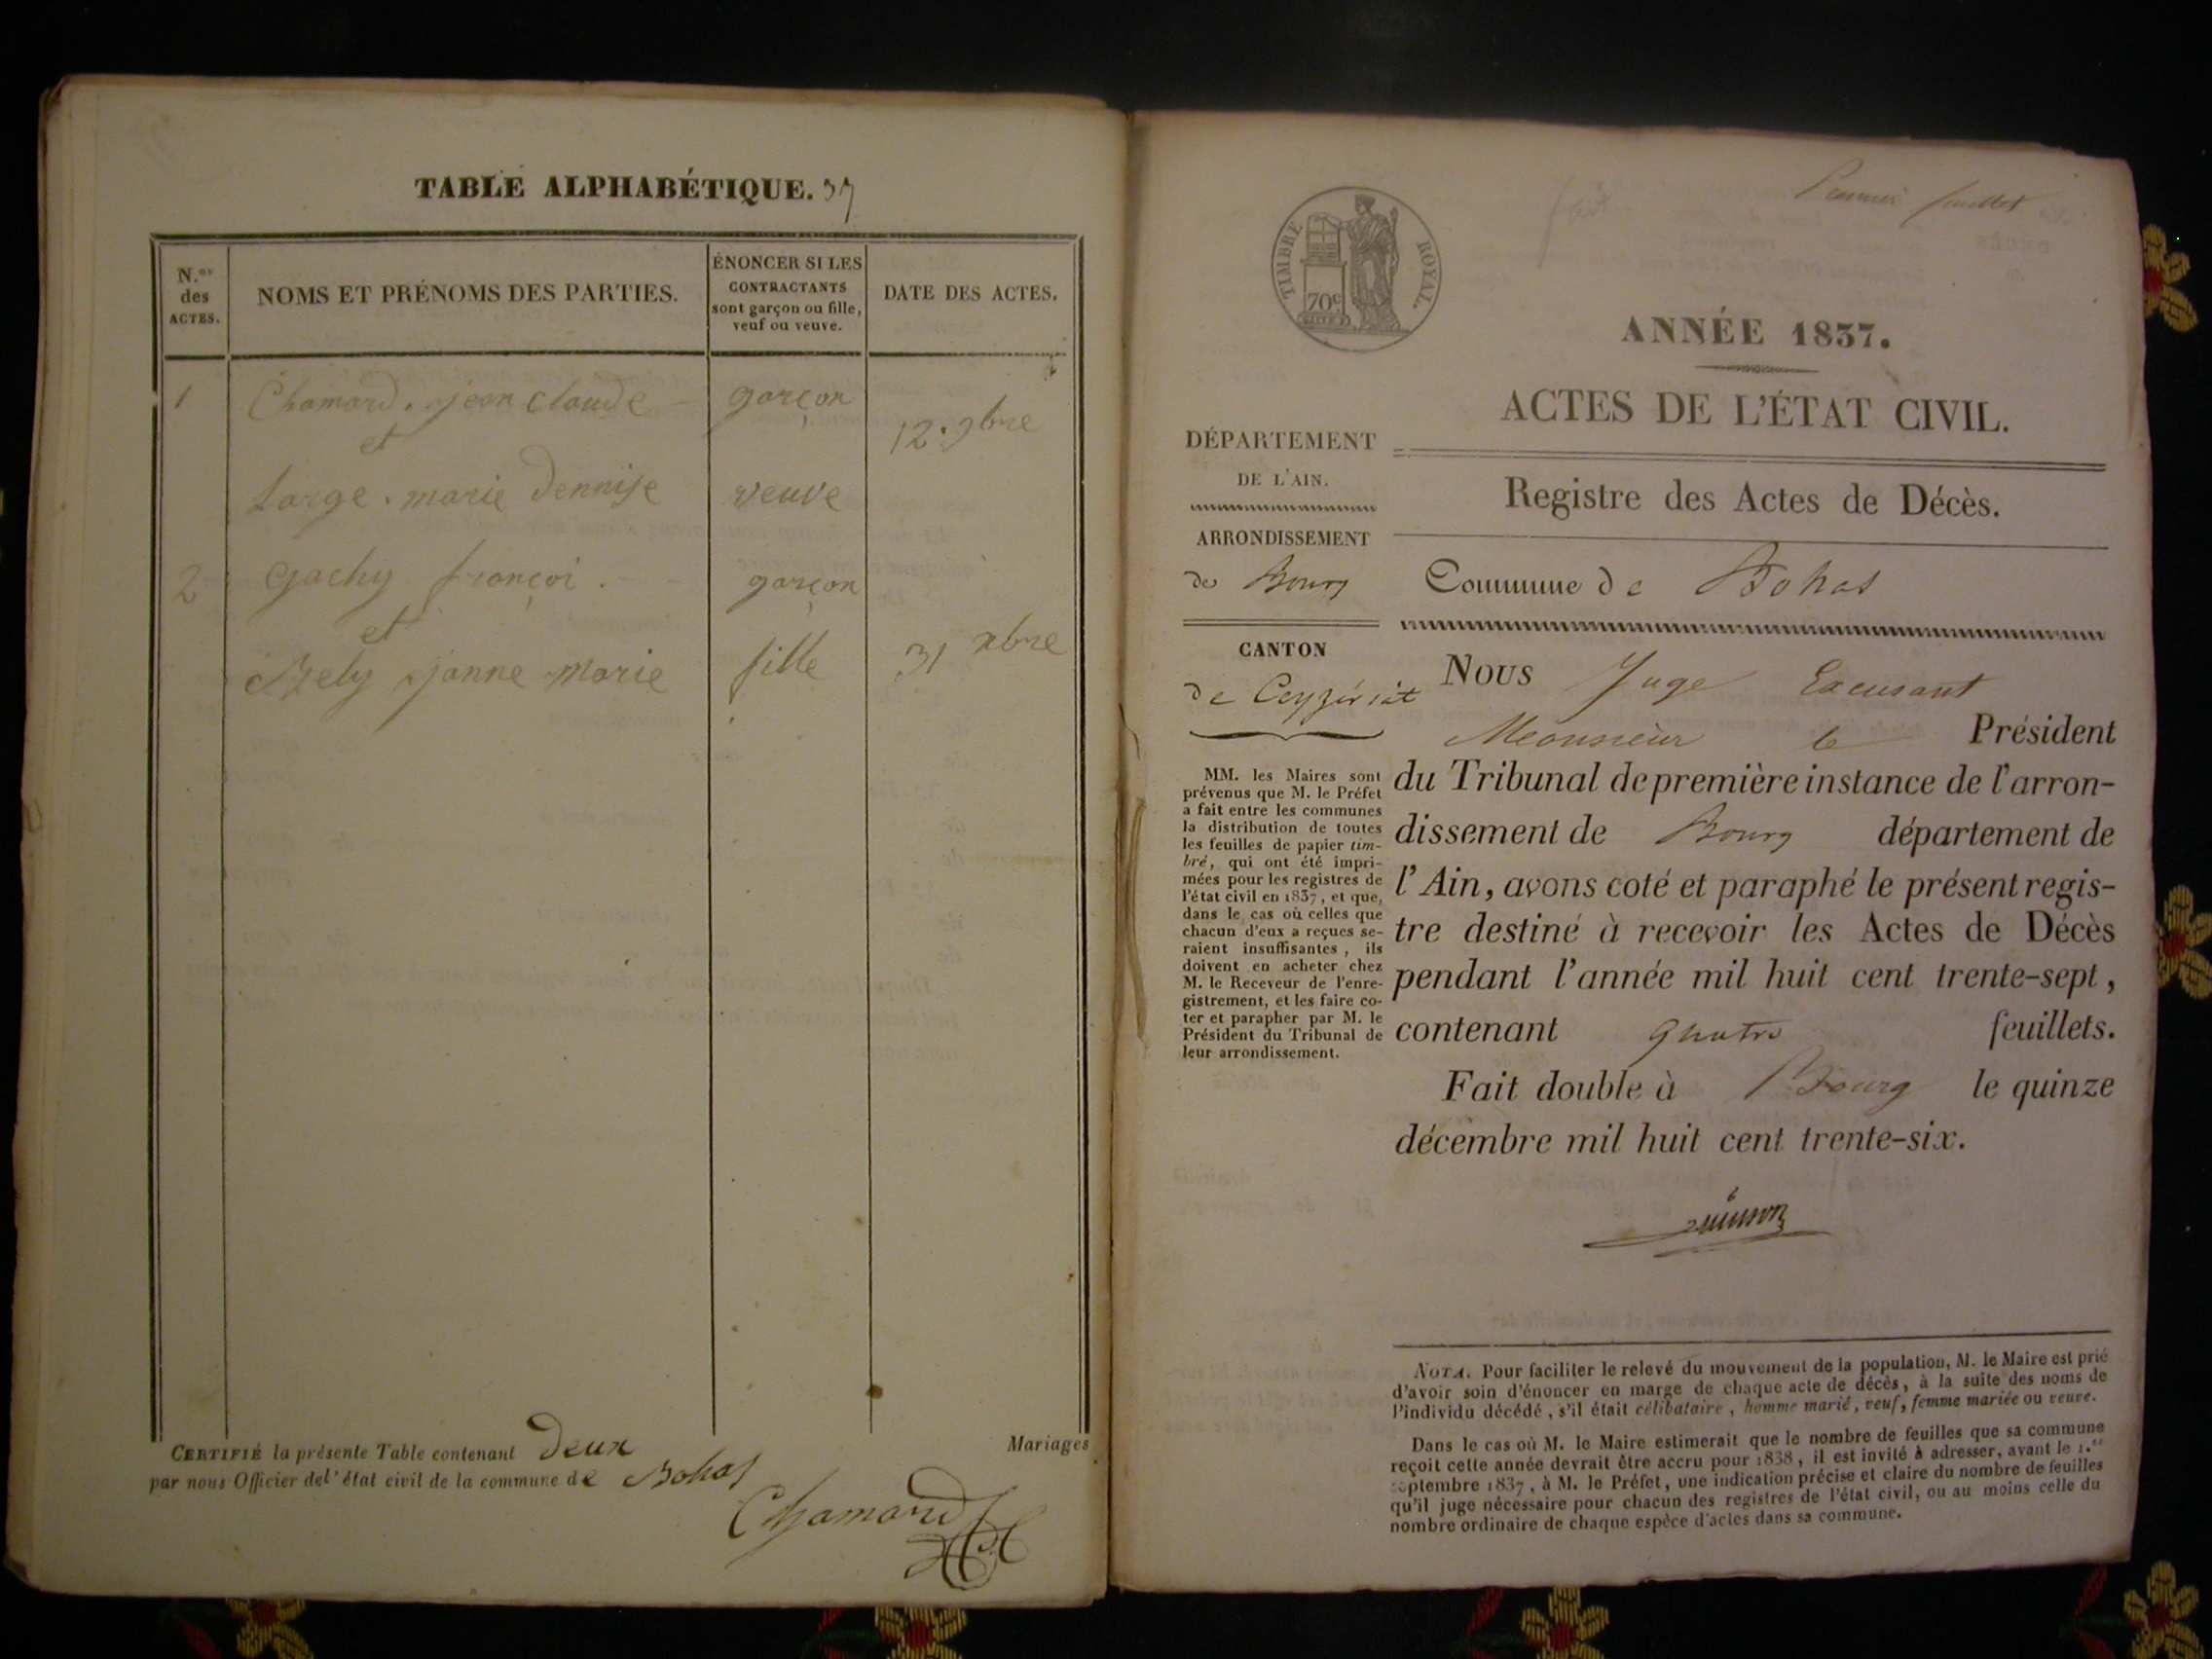 TABLE ALPHABÉTIQUE. 37
N.os des ACTES.
NOMS ET PRÉNOMS DES PARTIES.
ÉNONCER SI LES CONTRACTANTS sont garçon ou fille, veuf ou veuve.
DATE DES ACTES.
1 Chamard. jean claude garçon
et 12. 9bre
Large. marie dennise veuve
2 Gachy françoi. garçon
et
Bely janne marie fille 31 xbre
CERTIFIÉ la présente Table contenant deux Mariages
par nous Officier de l'état civil de la commune de Bohas
Chamard
Premier feuillet
TIMBRE ROYAL.
70c
ANNÉE 1837.
ACTES DE L'ÉTAT CIVIL.
Registre des Actes de Décès.
DÉPARTEMENT
DE L'AIN.
ARRONDISSEMENT
de Bourg
CANTON
de Ceyzériat
MM. les Maires sont
prévenus que M. le Préfet
a fait entre les communes
la distribution de toutes
les feuilles de papier tim-
bré, qui ont été impri-
mées pour les registres de
l'état civil en 1837, et que,
dans le cas où celles que
chacun d'eux a reçues se-
raient insuffisantes, ils
doivent en acheter chez
M. le Receveur de l'enre-
gistrement, et les faire co-
ter et parapher par M. le
Président du Tribunal de
leur arrondissement.
Commune de Bohas
Nous Juge Excusant
Monsieur le Président
du Tribunal de première instance de l'arron-
dissement de Bourg département de
l'Ain, avons coté et paraphé le présent regis-
tre destiné à recevoir les Actes de Décès
pendant l'année mil huit cent trente-sept,
contenant quatre feuillets.
Fait double à Bourg le quinze
décembre mil huit cent trente-six.
NOTA. Pour faciliter le relevé du mouvement de la population, M. le Maire est prié
d'avoir soin d'énoncer en marge de chaque acte de décès, à la suite des noms de
l'individu décédé, s'il était célibataire, homme marié, veuf, femme mariée ou veuve.
Dans le cas où M. le Maire estimerait que le nombre de feuilles que sa commune
reçoit cette année devrait être accru pour 1838, il est invité à adresser, avant le 1.er
septembre 1837, à M. le Préfet, une indication précise et claire du nombre de feuilles
qu'il juge nécessaire pour chacun des registres de l'état civil, ou au moins celle du
nombre ordinaire de chaque espèce d'actes dans sa commune.